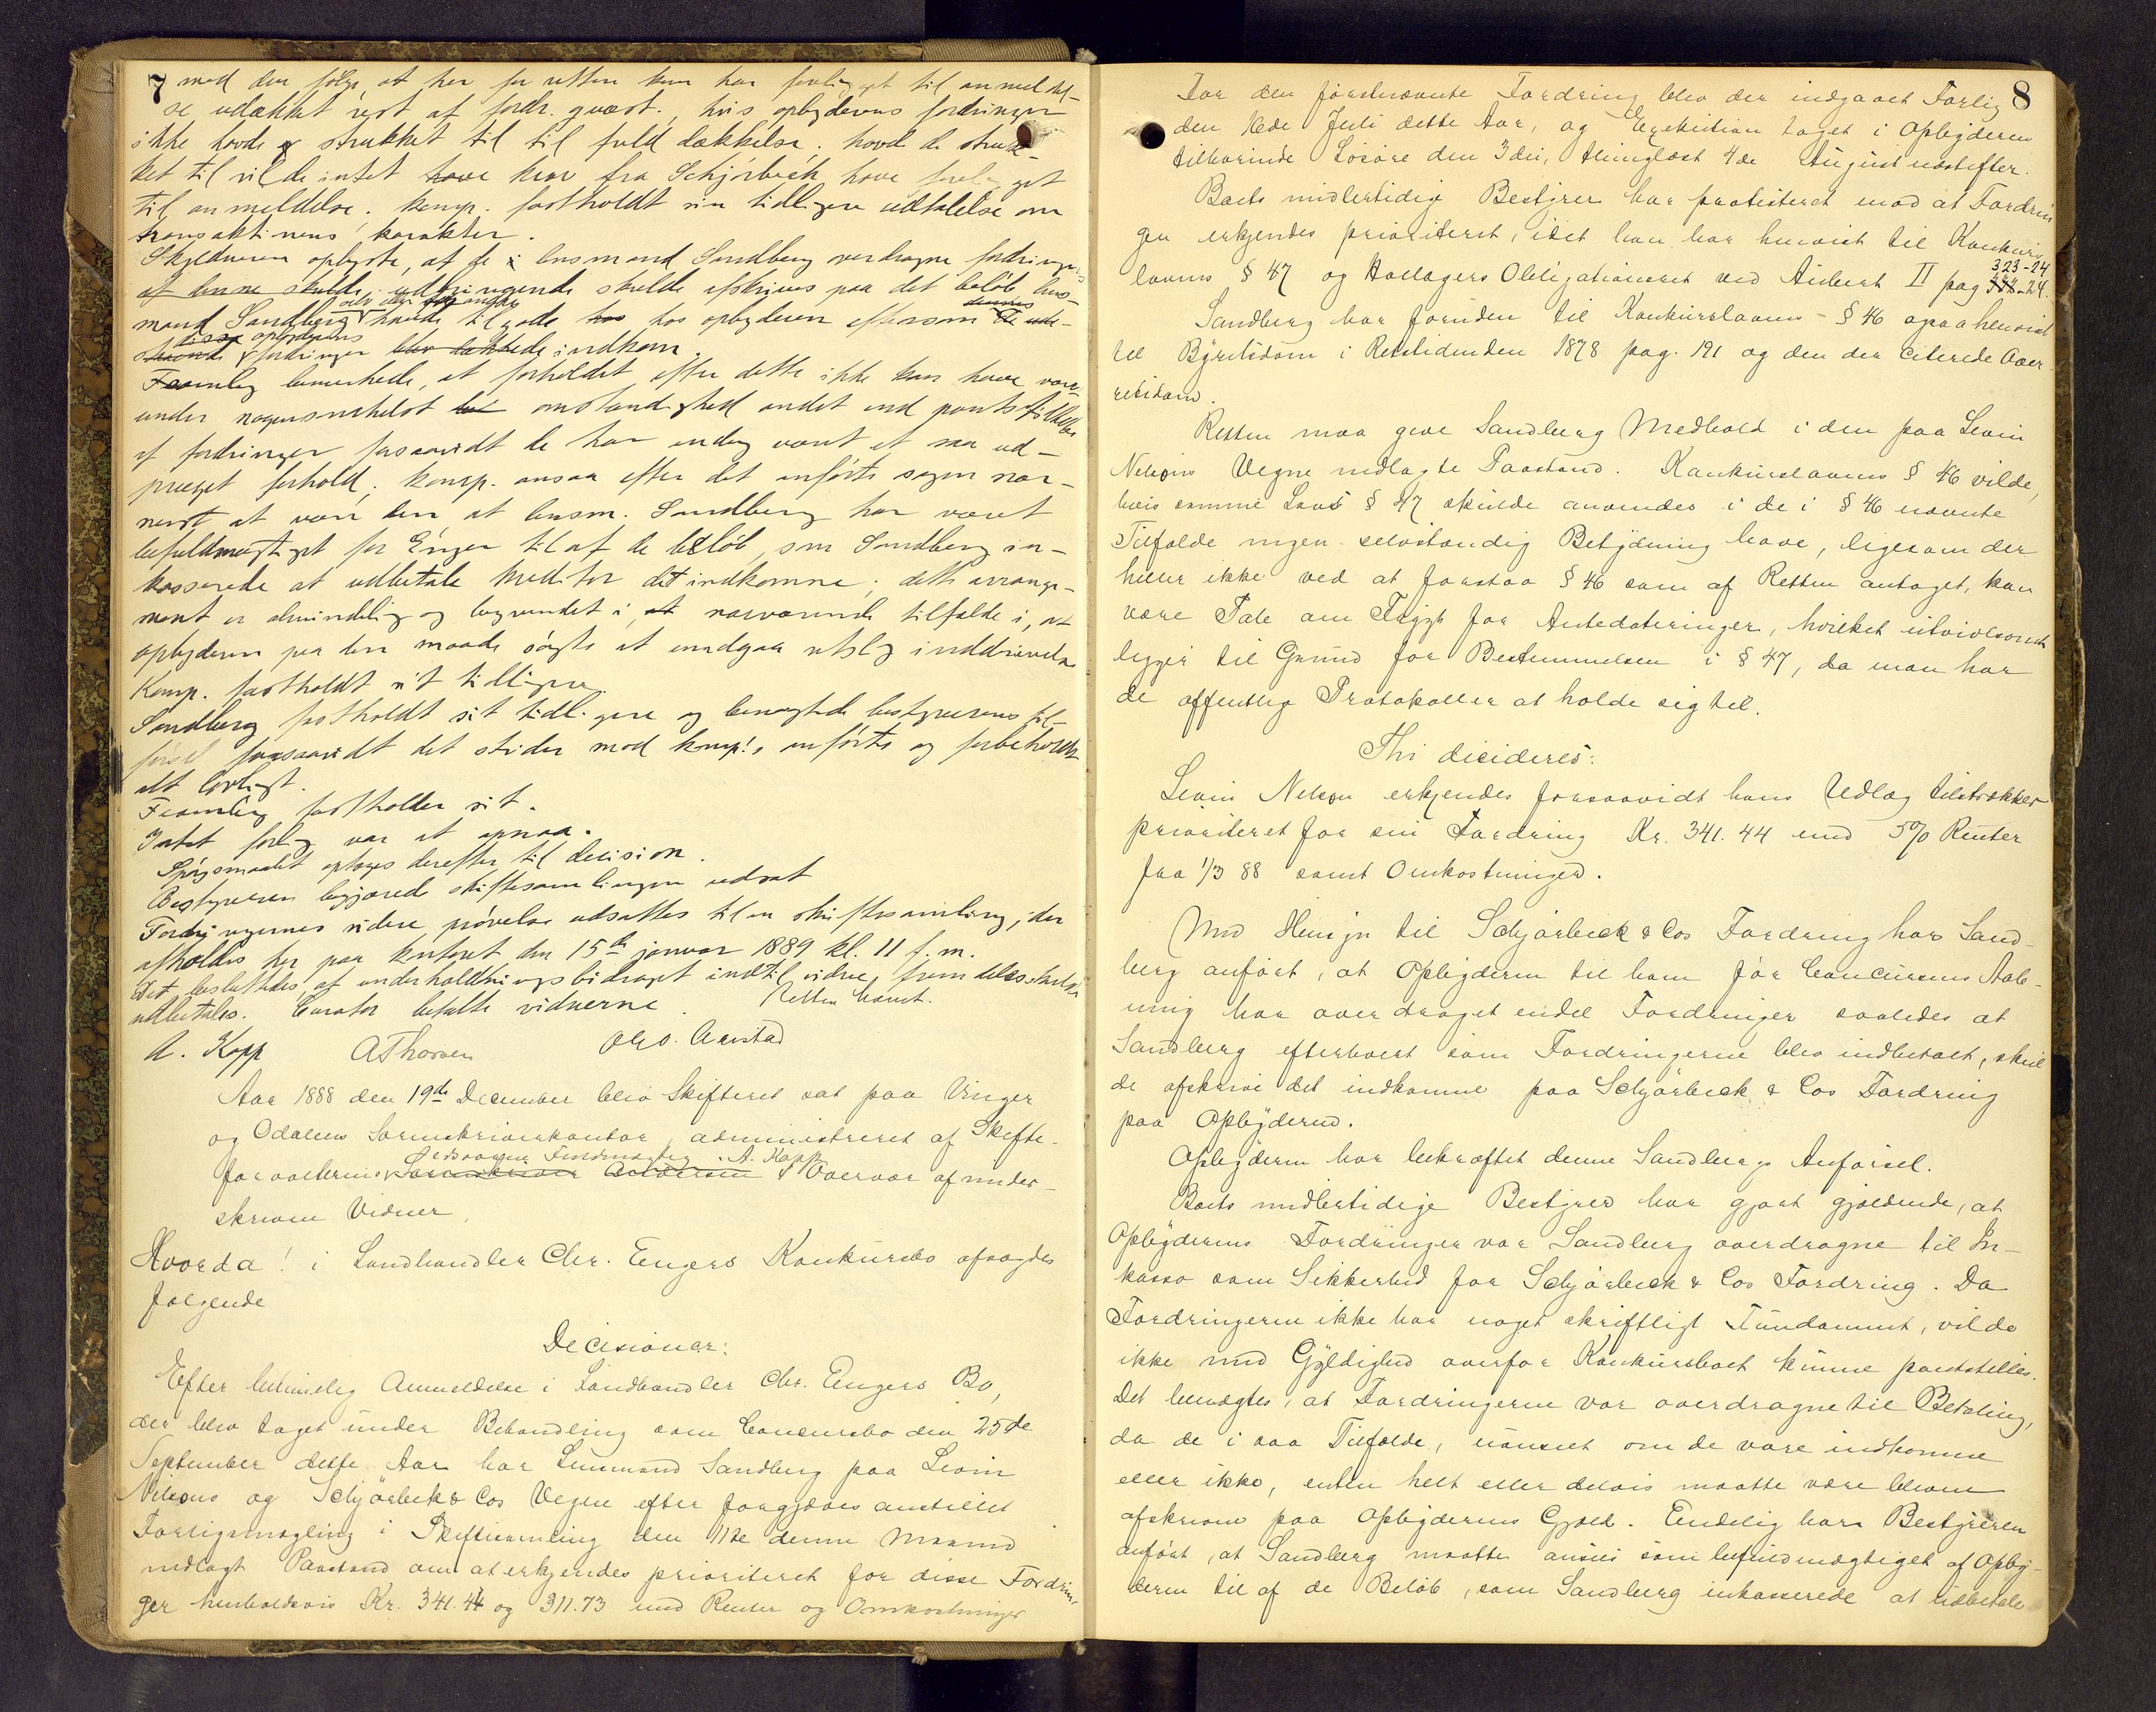 7
med den følge, at her for retten kun har foreligget til anmeldel-
se udækket rest af fordr. qvæst., hvis opbyderens fordringer
ikke havde strukket til til fuld dækkelse. havde de struk-
ket til vilde intet have krav fra Schjørbeck have foreligget
til anmeldelse. komp. fastholdt sin tidligere udtalelse om
transaktionens karakter.
Skyldneren oplyste, at de lensmand Sandberg overdragne fordringer
af denne skulde udbringende skulde afskrives paa det beløb lens-
mand Sandberg havde tilgode hos opbyderen eftersom
disse opbyderens fordringer blev indkom.
Framley bemærkede, at forholdet efter dette ikke kan have været
under nogensomhelst omstændighed andet end pantstillelse
af fordringer forsaavidt de har endog været et saa ud-
præget forhold; komp. ansaa efter det anførte sagen nær-
mest at være den, at lensm. Sandberg har været
befuldmægtiget for Enger til af de beløb, som Sandberg in-
kasserede at udbetale kreditor det indkomne; dette arrange-
ment er almindelig og begrundet i nærværende tilfælde i, at
opbyderen paa den maade søgte at undgaa retslig inddrivelse
Komp. fastholdt sit tidligere.
Sandberg fastholdt sit tidligere og benægtede bestyrerens til-
førsel forsaavidt det strider mod komp's anførte og forbeholdt
alt lovligt.
Framley fastholder sit.
Intet forlig var at opnaa.
Spørgsmaalet optages derefter til decision.
Bestyreren begjærede skiftesamlingen udsat
Fordringernes videre prøvelse udsattes til en skiftesamling, der
afholdes her paa kontoret den 15de januar 1889 kl. 11 f.m.
Det besluttedes, at underholdningsbidraget indtil videre fremdeles skulde
udbetales. Curator betalte vidnerne. Retten hævet.
A. Kopp A Thorsen Ole O. Aarstad
Aar 1888 den 19de December blev Skifteret sat paa Vinger
og Odalens Sorenskriverkontor, administreret af Skifte-
forvalterens Edsvorne Fuldmægtig A. Kopp
Sorenskriver Andersen i Overvær af under-
skrevne Vidner,
Hvorda! i Landhandler Chr. Engers Konkursbo afsagdes
følgende
Decisioner:
Efter betimelig Anmeldelse i Landhandler Chr. Engers Bo,
der blev taget under Behandling som Concursbo den 25de
September dette Aar har Lensmand Sandberg paa Levin
Nelsons og Schjørbek & Cos Vegne efter forgjæves anstillet
Forligsmægling i Skiftesamling den 11te denne Maaned
nedlagt Paastand om at erkjendes prioriteret for disse Fordrin-
ger henholdsvis Kr. 341.44 og 311.73 med Renter og Omkostninger
8
For den førstnævnte Fordring blev der indgaaet Forlig
den 16de Juli dette Aar, og Exekution taget i Opbyderen
tilhørende Løsøre den 3die, thinglæst 4de August næstefter.
Boets midlertidige Bestyrer har protesteret mod at Fordrin
gen erkjendes prioriteret, idet han har henvist til Konkurs
lovens § 47 og Hallagers Obligationsret ved Aubert II pag 323-24
Sandberg har foruden til Konkurslovens § 46 ogsaa henvist
til Byretsdom i Retstidenden 1878 pag. 191 og den der citerede Over
retsdom.
Retten maa give Sandberg Medhold i den paa Levin
Nelsons Vegne nedlagte Paastand. Konkurslovens § 46 vilde,
hvis samme Lovs § 47 skulde anvendes i de i § 46 nævnte
Tilfælde ingen selvstændig Betydning have, ligesom der
heller ikke ved at forstaa § 46 som af Retten antaget, kan
være Tale om Frygt for Antedateringer, hvilket utvivlsomt
ligger til Grund for Bestemmelsen i § 47, da man har
de offentlige Protokoller at holde sig til.
Thi decideres:
Levin Nelson erkjendes forsaavidt hans Udlæg tilstrækker
prioriteret for sin Fordring Kr. 341.44 med 5% Renter
fra 1/3 88 samt Omkostninger.
Med Hensyn til Schjørbeck & Cos Fordring har Sand-
berg anført, at Opbyderen til ham før Concursens Aab-
ning har overdraget endel Fordringer saaledes at
Sandberg efterhvert som Fordringerne blev indbetalt, skul
de afskrive det indkomne paa Schjørbeck & Cos Fordring
paa Opbyderen.
Opbyderen har bekræftet denne Sandbergs Anførsel.
Boets midlertidige Bestyrer har gjort gjældende, at
Opbyderens Fordringer var Sandberg overdragne til In-
kasso som Sikkerhed for Schjørbeck & Cos Fordring. Da
Fordringerne ikke har noget skriftligt Fundament, vilde
ikke med Gyldighed overfor Konkursboet kunne pantstilles.
Det benægtes, at Fordringerne var overdragne til Betaling,
da de i saa Tilfælde, uanseet om de være indkomne
eller ikke, enten helt eller delvis maatte være bleven
afskrevne paa Opbyderens Gjæld. Endelig har Bestyreren
anført, at Sandberg maatte ansees som befuldmægtiget af Opby-
deren til af de Beløb, som Sandberg inkasserede at udbetale